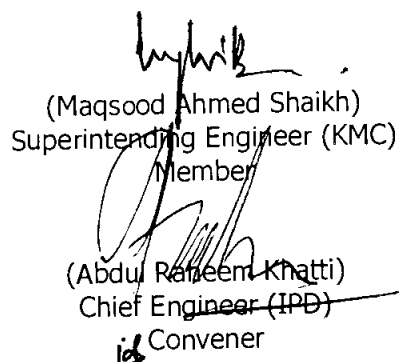 (Maqsood Ahmed Shaikh)
Superintending Engineer (KMC)
Member
(Abdul Raheem Khatti)
Chief Engineer (IPD)
Convener